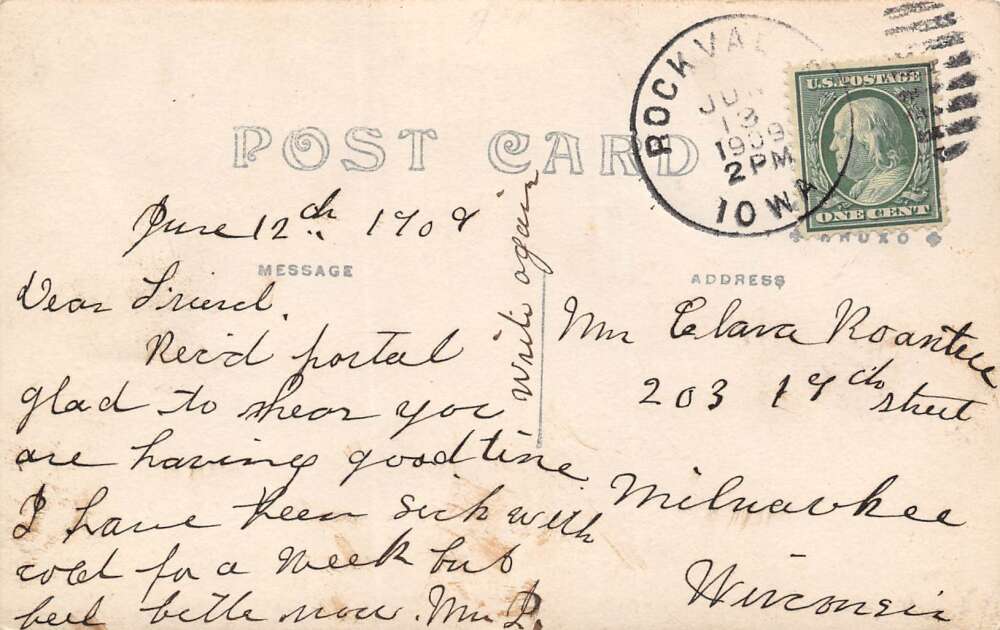 POST CARD
June 12th 1909
MESSAGE
Dear Friend.
Rec'd portal
glad to hear you
are having good time
I have been sick with
cold for a week but
feel bette now. Mrs. L.
Write again
ROCKVAL
JUN
13
1909
2 PM
IOWA
U.S. POSTAGE
ONE CENT
KRUXO
ADDRESS
Clara Roantree
203 17th
street
Milwaukee
Wisconsin